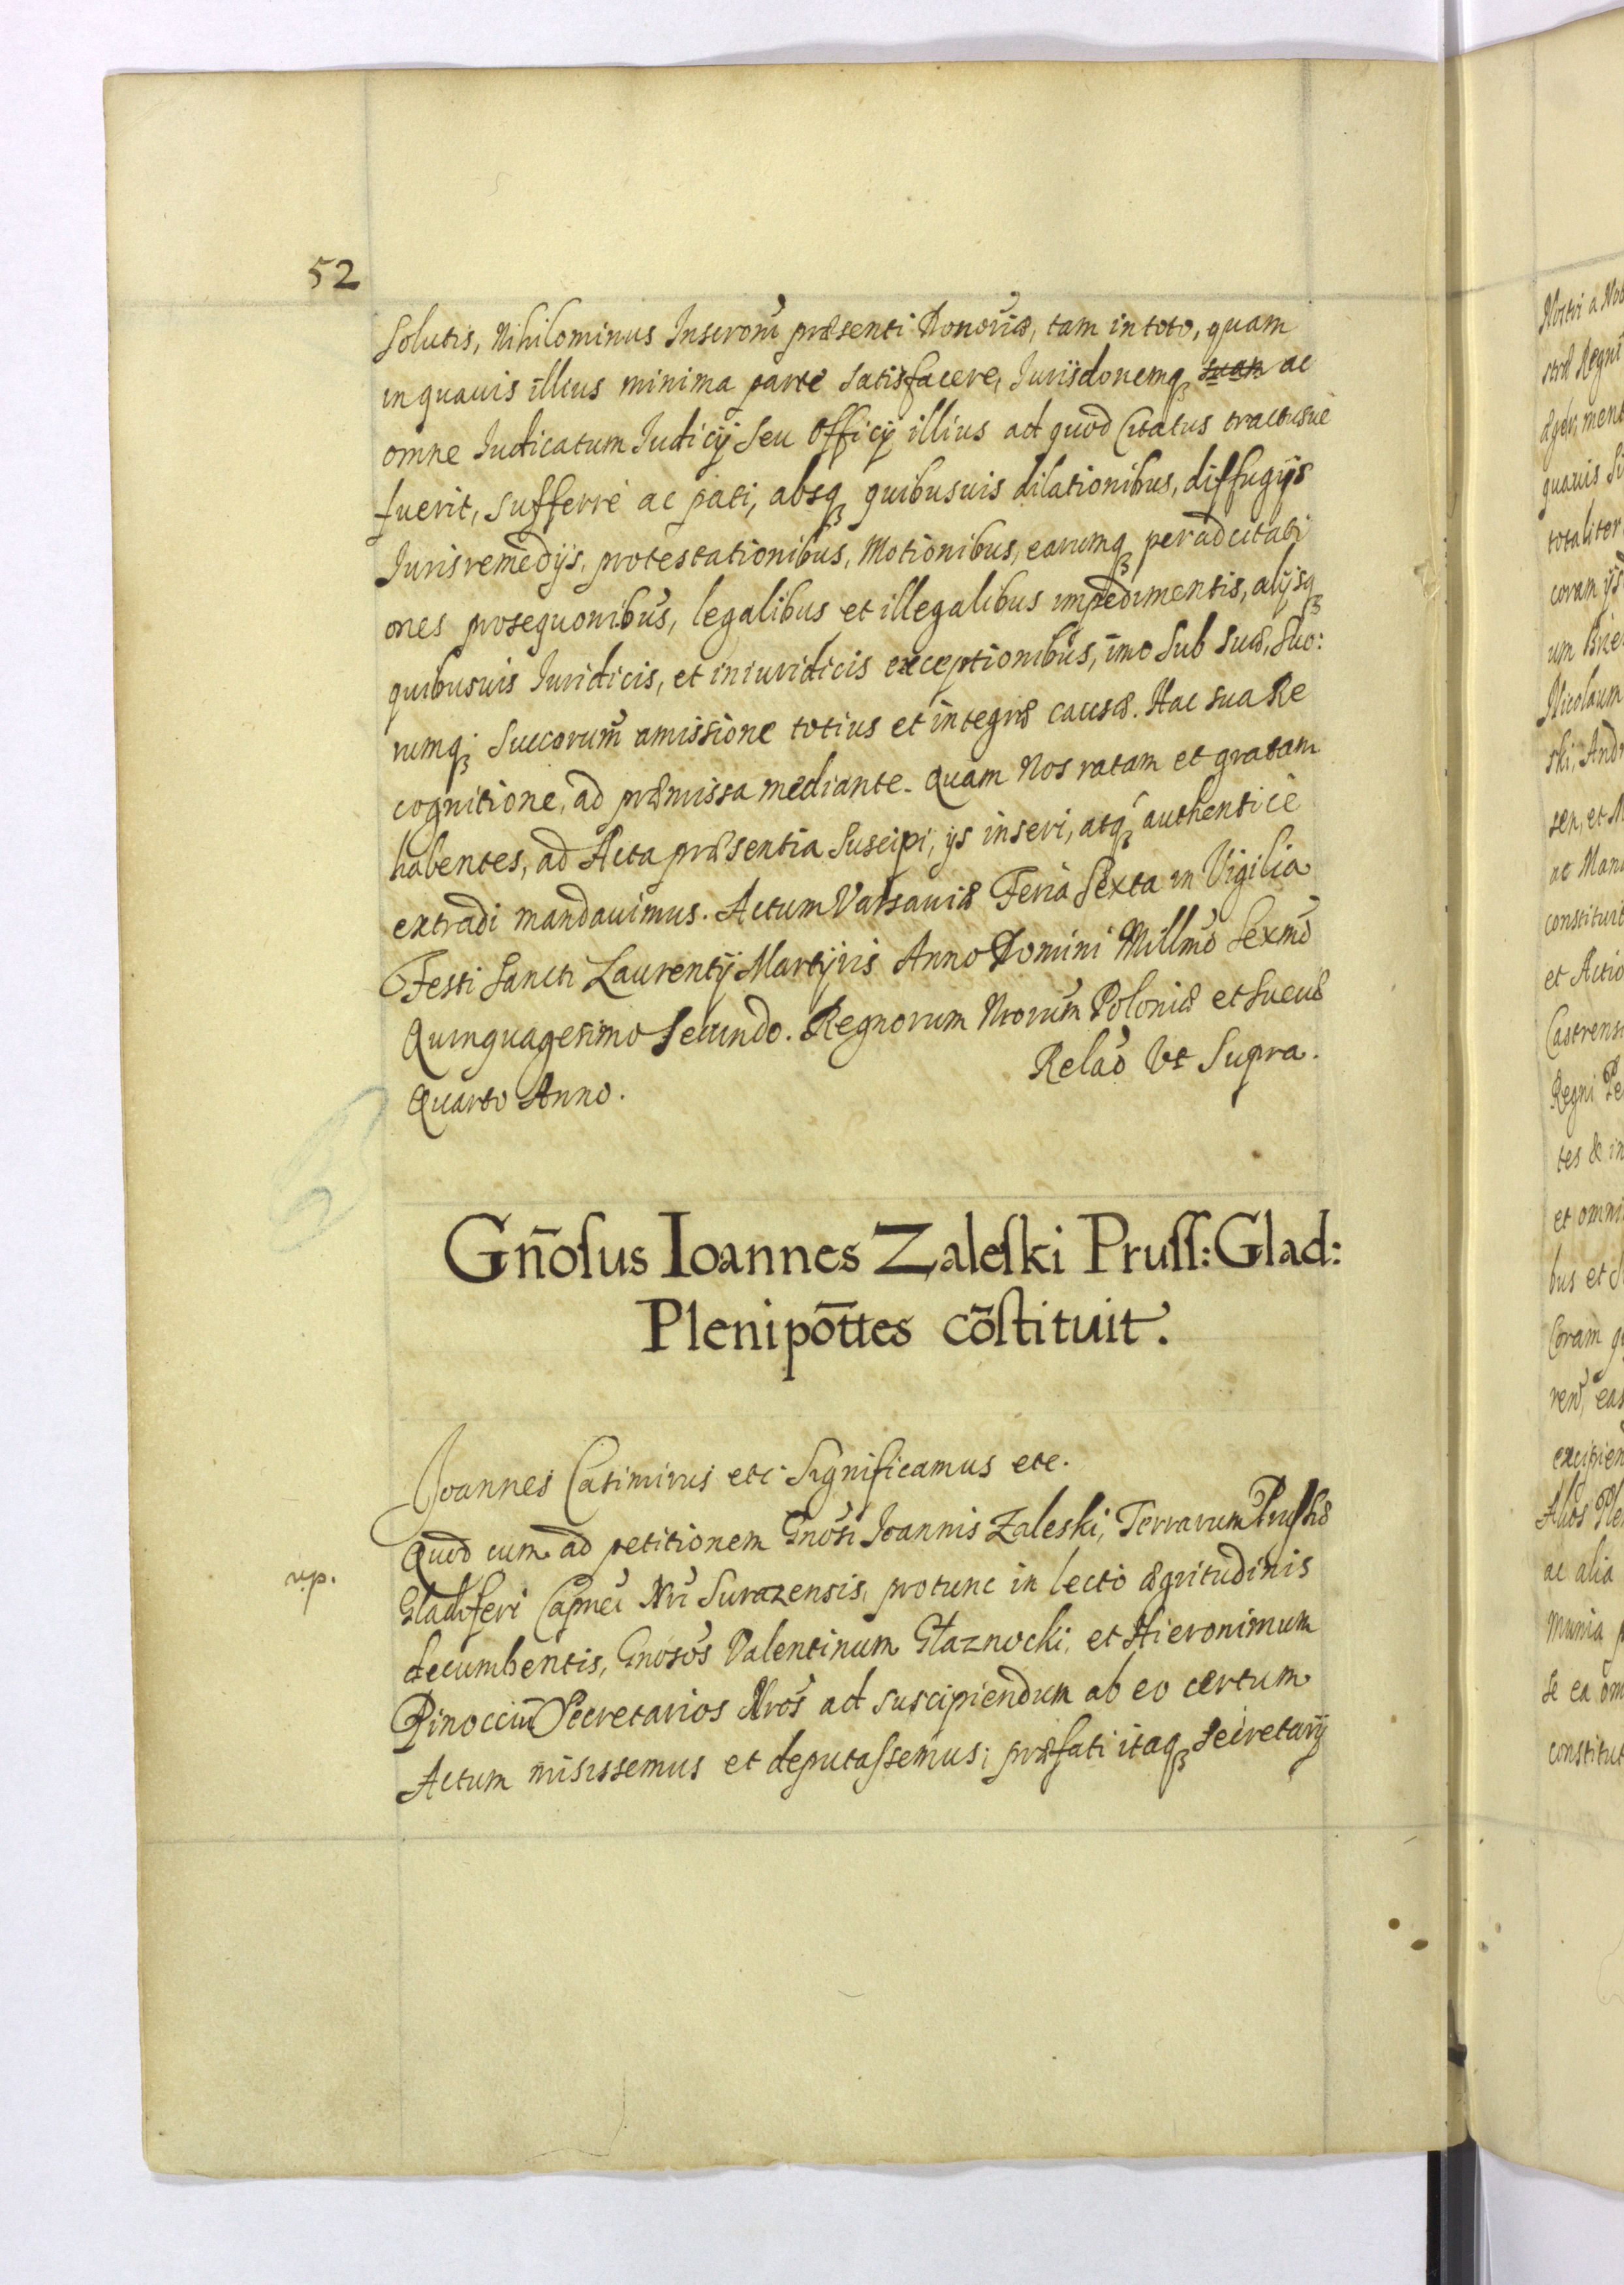 52
Solutis, Nihilominus Inscroni præsenti Donoriæ, tam in toto, quam
in quavis illius minima parte satisfacere, Jurisdonemq suam ac
omne Iudicatum Iudicij seu Officij illius ad quod Citatus tractusue
fuerit, sufferre ac pati, absq quibusuis dilationibus, diffugijs
Juris remedijs, protestationibus, Motionibus, earumq per adcitati
ones prosequonibus, legalibus et illegalibus impedimentis, alijsq
quibusuis Iuridicis, et iniuridicis exceptionibus, imo sub sua, suo:
rumq; Succorum amissione totius et integræ causæ. Hac sua Re
cognitione, ad præmissa mediante. Quam Nos ratam et gratam
habentes, ad Acta præsentia suscipi, ijs inseri, atq authentice
extradi mandauimus. Actum Varsauiæ Feria Sexta in Vigilia
Festi Sancti Laurentij Martijris Anno Domini Millmo Sexmo
Quinquagesimo Secundo. Regnorum Nrorum Poloniæ et Sueciæ
Quarto Anno.
Relao Vt Supra.
Gñosus Ioannes Zaleski Pruss: Glad:
Plenipōttes cōstituit.
Joannes Casimirus etc. Significamus etc.
Quod cum ad petitionem Gnosi Joannis Zaleski, Terrarum Prussiæ
rip.
Gladiferi Capnei Nri Surazensis, protunc in lecto ægritudinis
decumbentis, Gnosos Valentinum Głaznocki, et Hieronimum
Pinocciũ Secretarios Nros ad suscipiendum ab eo certum
Actum misissemus et deputassemus; præfati itaq Secretarij